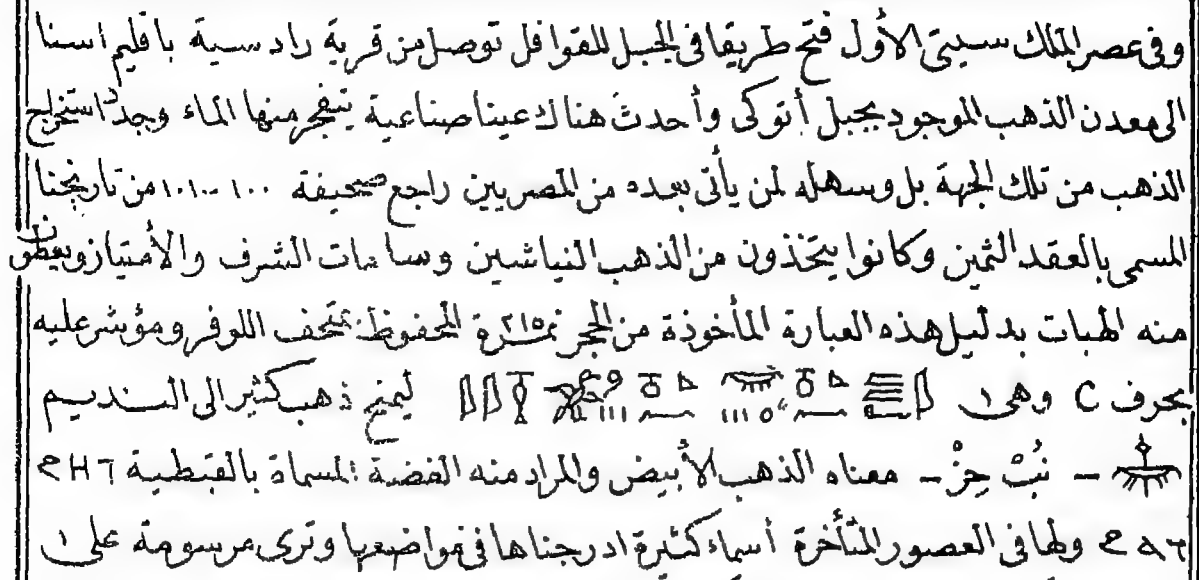 وفى عصر الملك سيتى الأول فتح طريقا فى الجبل للقوافل توصل من قرية رادسية باقليم اسنا
الى معدن الذهب الموجود بجبل أتوكى وأحدث هناك عينا صناعية يتفجر منها الماء وجدد استخراج
الذهب من تلك الجهة بل وسهله لمن يأتى بعده من المصريين راجع صحيفة ١٠٠-١٠١ من تاريخنا
المسمى بالعقد الثمين وكانوا يتخذون من الذهب النياشين وسامات الشرف والأمتياز ويعطون
منه الهبات بدليل هذه العبارة المأخوذة من الحجر نمرة ٢١٥ المحفوظ بمتحف اللوفر ومؤشر عليه
بحرف C وهى ١ ليمنح ذهب كثير الى النديم
– نُبْ حِزْ – معناه الذهب الأبيض والمراد منه الفضة المسماة بالقبطية
ولها فى العصور المتأخرة أسماء كثيرة ادرجناها فى مواضعها وترى مرسومة على ١